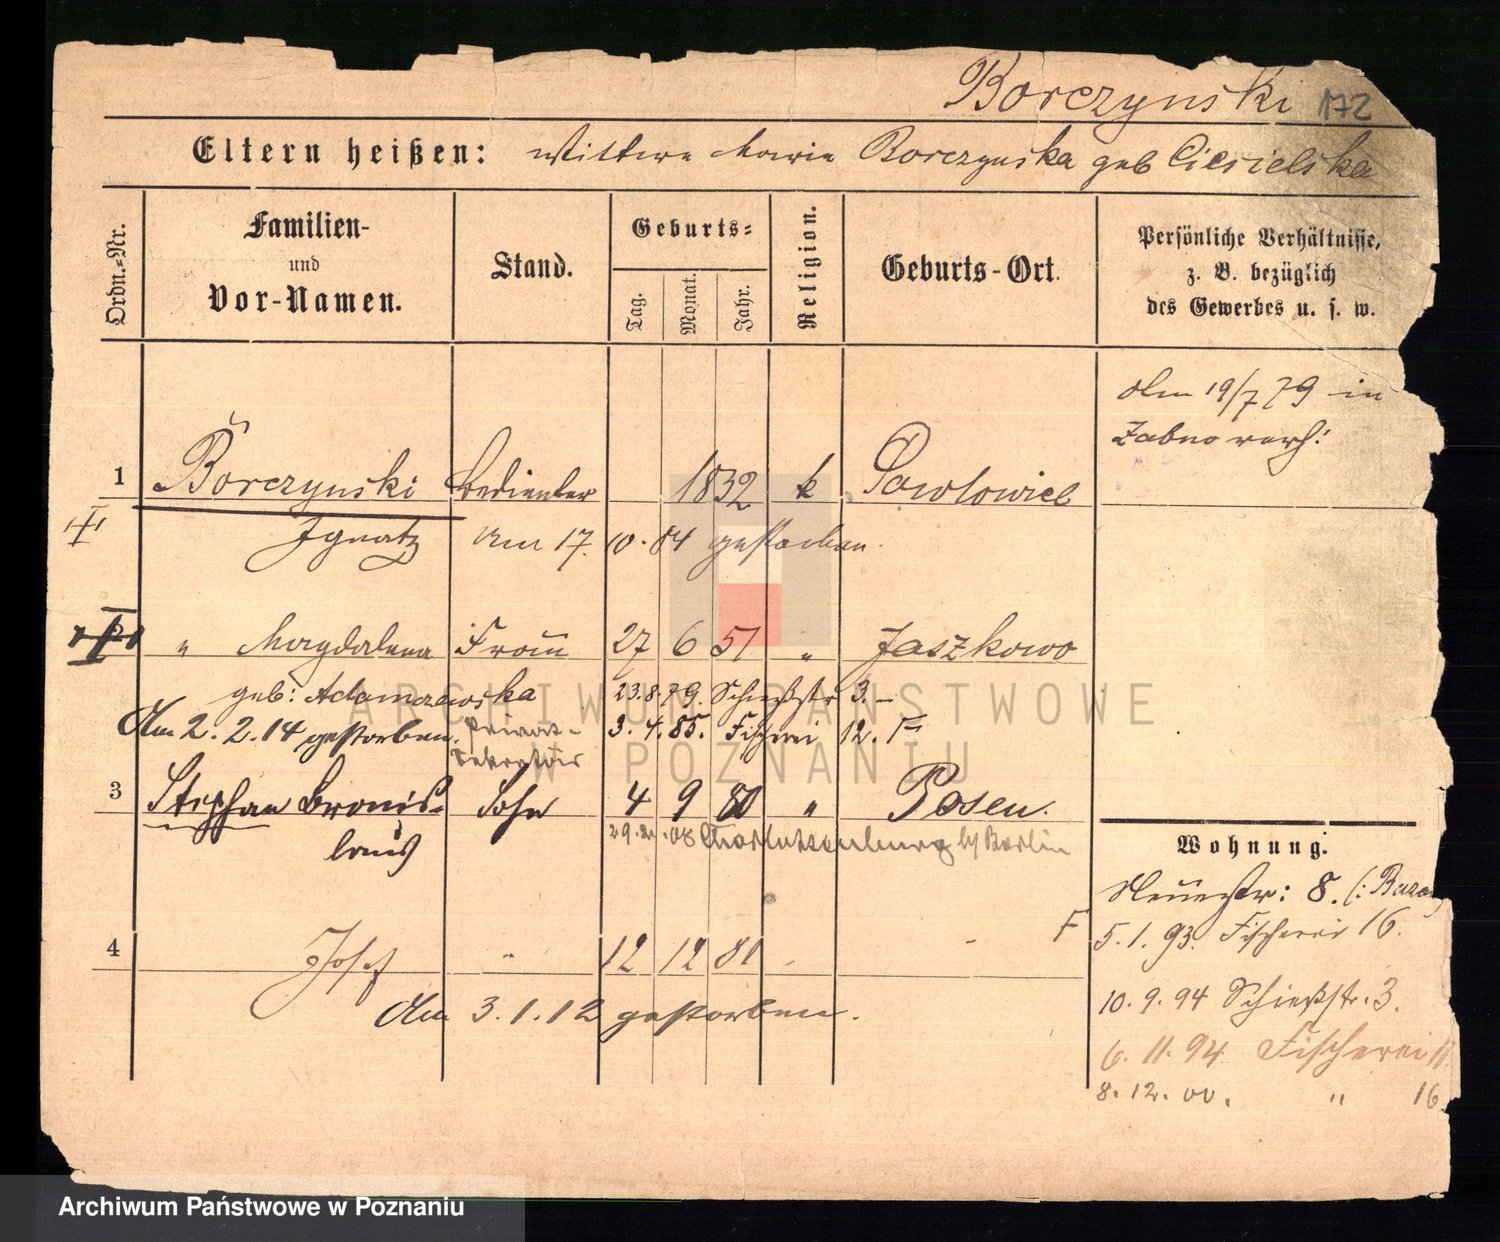 Borczynski 172
Eltern heißen: Wittwe Marie Borczynska geb Ciesielska
Ordn.-Nr.
Familien-
und
Vor-Namen.
Stand.
Geburts-
Tag.
Monat.
Jahr.
Religion.
Geburts-Ort.
Persönliche Verhältnisse,
z. B. bezüglich
des Gewerbes u. s. w.
Am 19/7 79 in
Zabno verh:
1 Borczynski Bedienter 1832 k Pawlowice
Ignatz Am 17. 10. 84 gestorben.
2 " Magdalena Frau 27 6 51 " Jaszkowo
geb: Adamczewska 23.8.79. Schießstr 3.
Am 2.2.14 gestorben. 3.4.85. Fischerei 12. F
Privat-
Sekretär
3 Stephan Bronis- Sohn 4 9 80 " Posen.
laus 08 Charlottenburg b/ Berlin
4 Josef " 12 12 81
F
Am 3.1.12 gestorben.
Wohnung.
Neuestr: 8. (: Bazar
5.1.93. Fischerei 16.
10.9.94 Schießstr. 3.
6.11.94 Fischerei 11
8.12.00. " 16
ARCHIWUM PAŃSTWOWE
W POZNANIU
Archiwum Państwowe w Poznaniu